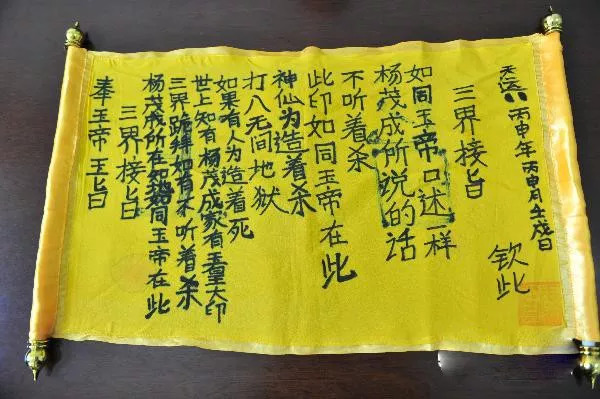 奉玉帝玉旨
三界接旨
杨茂成所在如地如同玉帝在此
三界跪拜如有不听着杀
世上知有杨茂成家有玉皇大印
如果有人为造着死
打八无间地狱
神仙为造着杀
此印如同玉帝在此
不听着杀
杨茂成所说的话
如同玉帝口述一样
三界接旨
钦此
天运八丙申年丙申月壬戌日